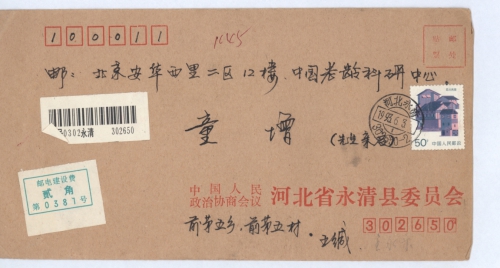 100011
1645
贴邮票处
邮: 北京安华西里二区12楼、中国老龄科研中心
0302永清 302650
童增
(先生亲启)
1993.6.
50分
中国人民邮政
邮电建设费
贰角
第0381号
中国人民
政治协商会议 河北省永清县委员会
302650
前第五乡、前第五村·王